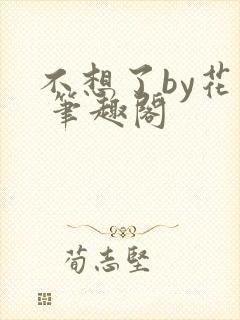 不想了by花
筆趣閣
荀志堅